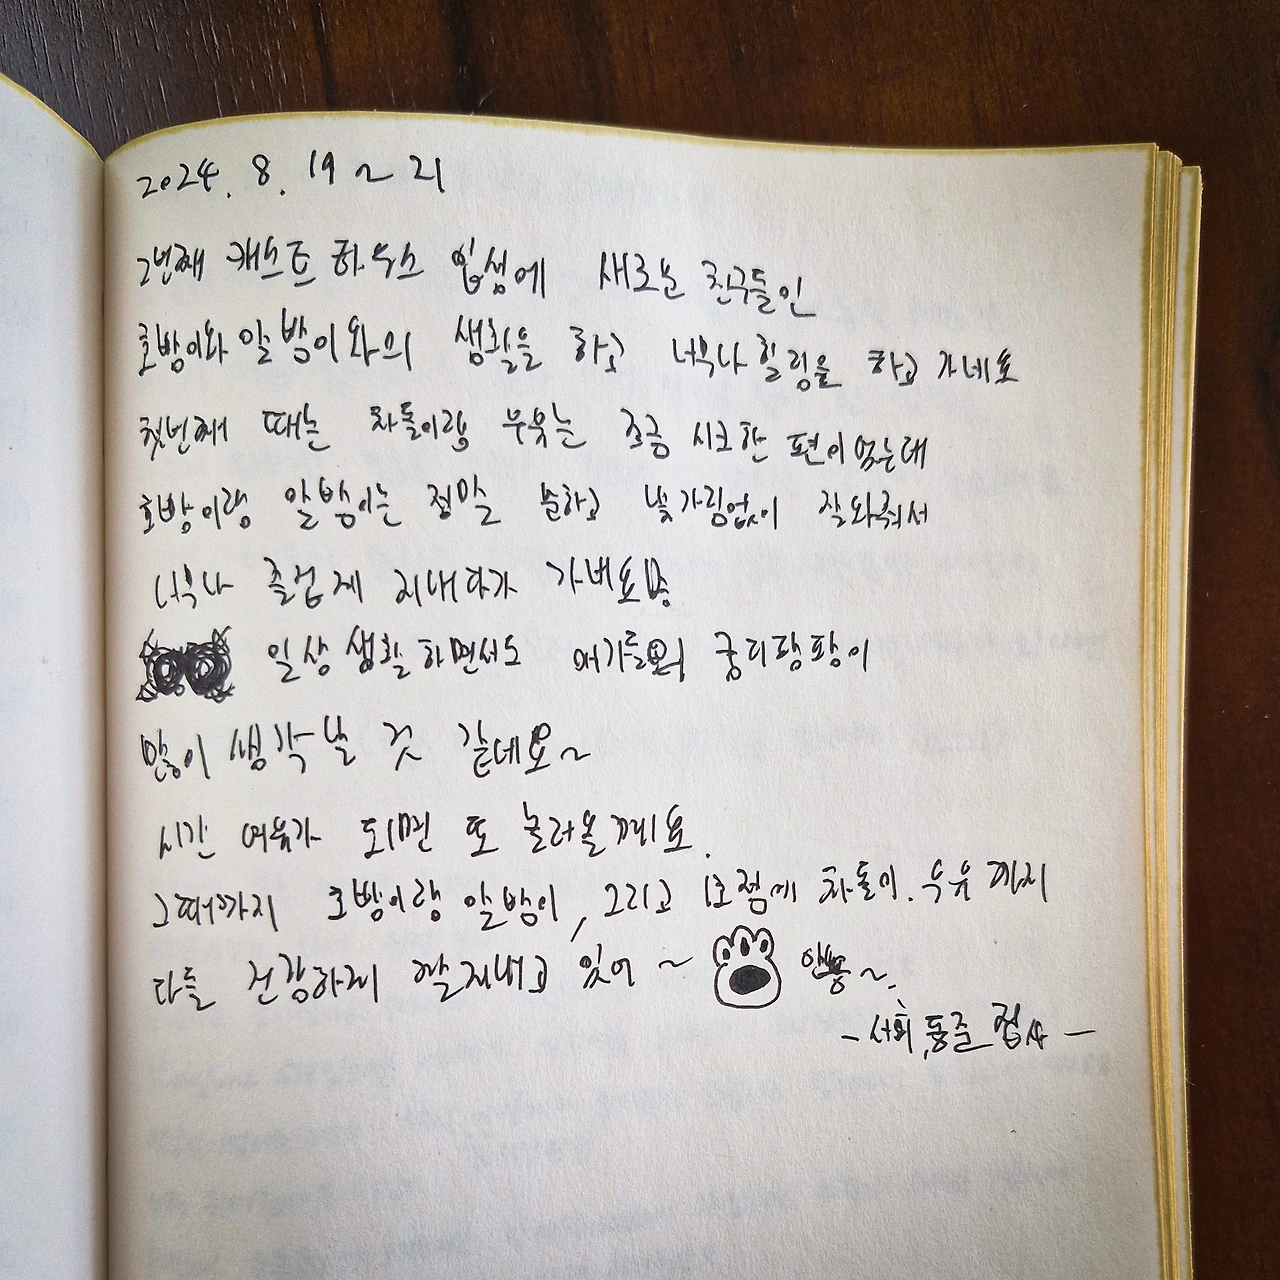 2024. 8. 19 ~ 21
2번째 캐스트하우스 입성에 새로운 친구들인
호밤이와 알밤이와의 생활을 하고 너무나 힐링을 하고 가네요
첫번째 때는 차돌이랑 우유는 조금 시크한 편이었는데
호밤이랑 알밤이는 정말 순하고 낯가림없이 잘와줘서
너무나 즐겁게 지내다가 가네요
일상생활하면서도 애기들의 궁디팡팡이
많이 생각날 것 같네요~
시간 여유가 되면 또 놀러올께요.
그때까지 호밤이랑 알밤이, 그리고 1호점에 차돌이. 우유까지
다들 건강하게 잘지내고 있어 ~ 안뇽~.
- 서희, 동준 집사 -